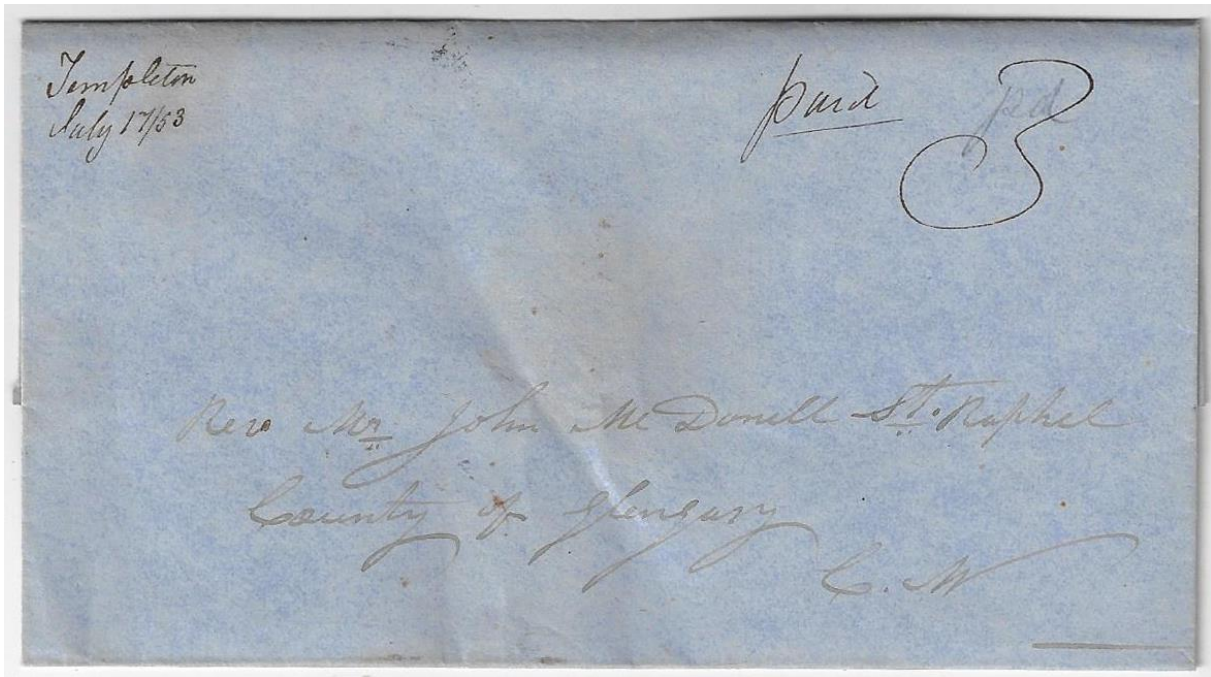 Templeton
July 17/53
paid
pd
3
Rev. Mr John McDonell St. Raphel
County of Glengary
C. W